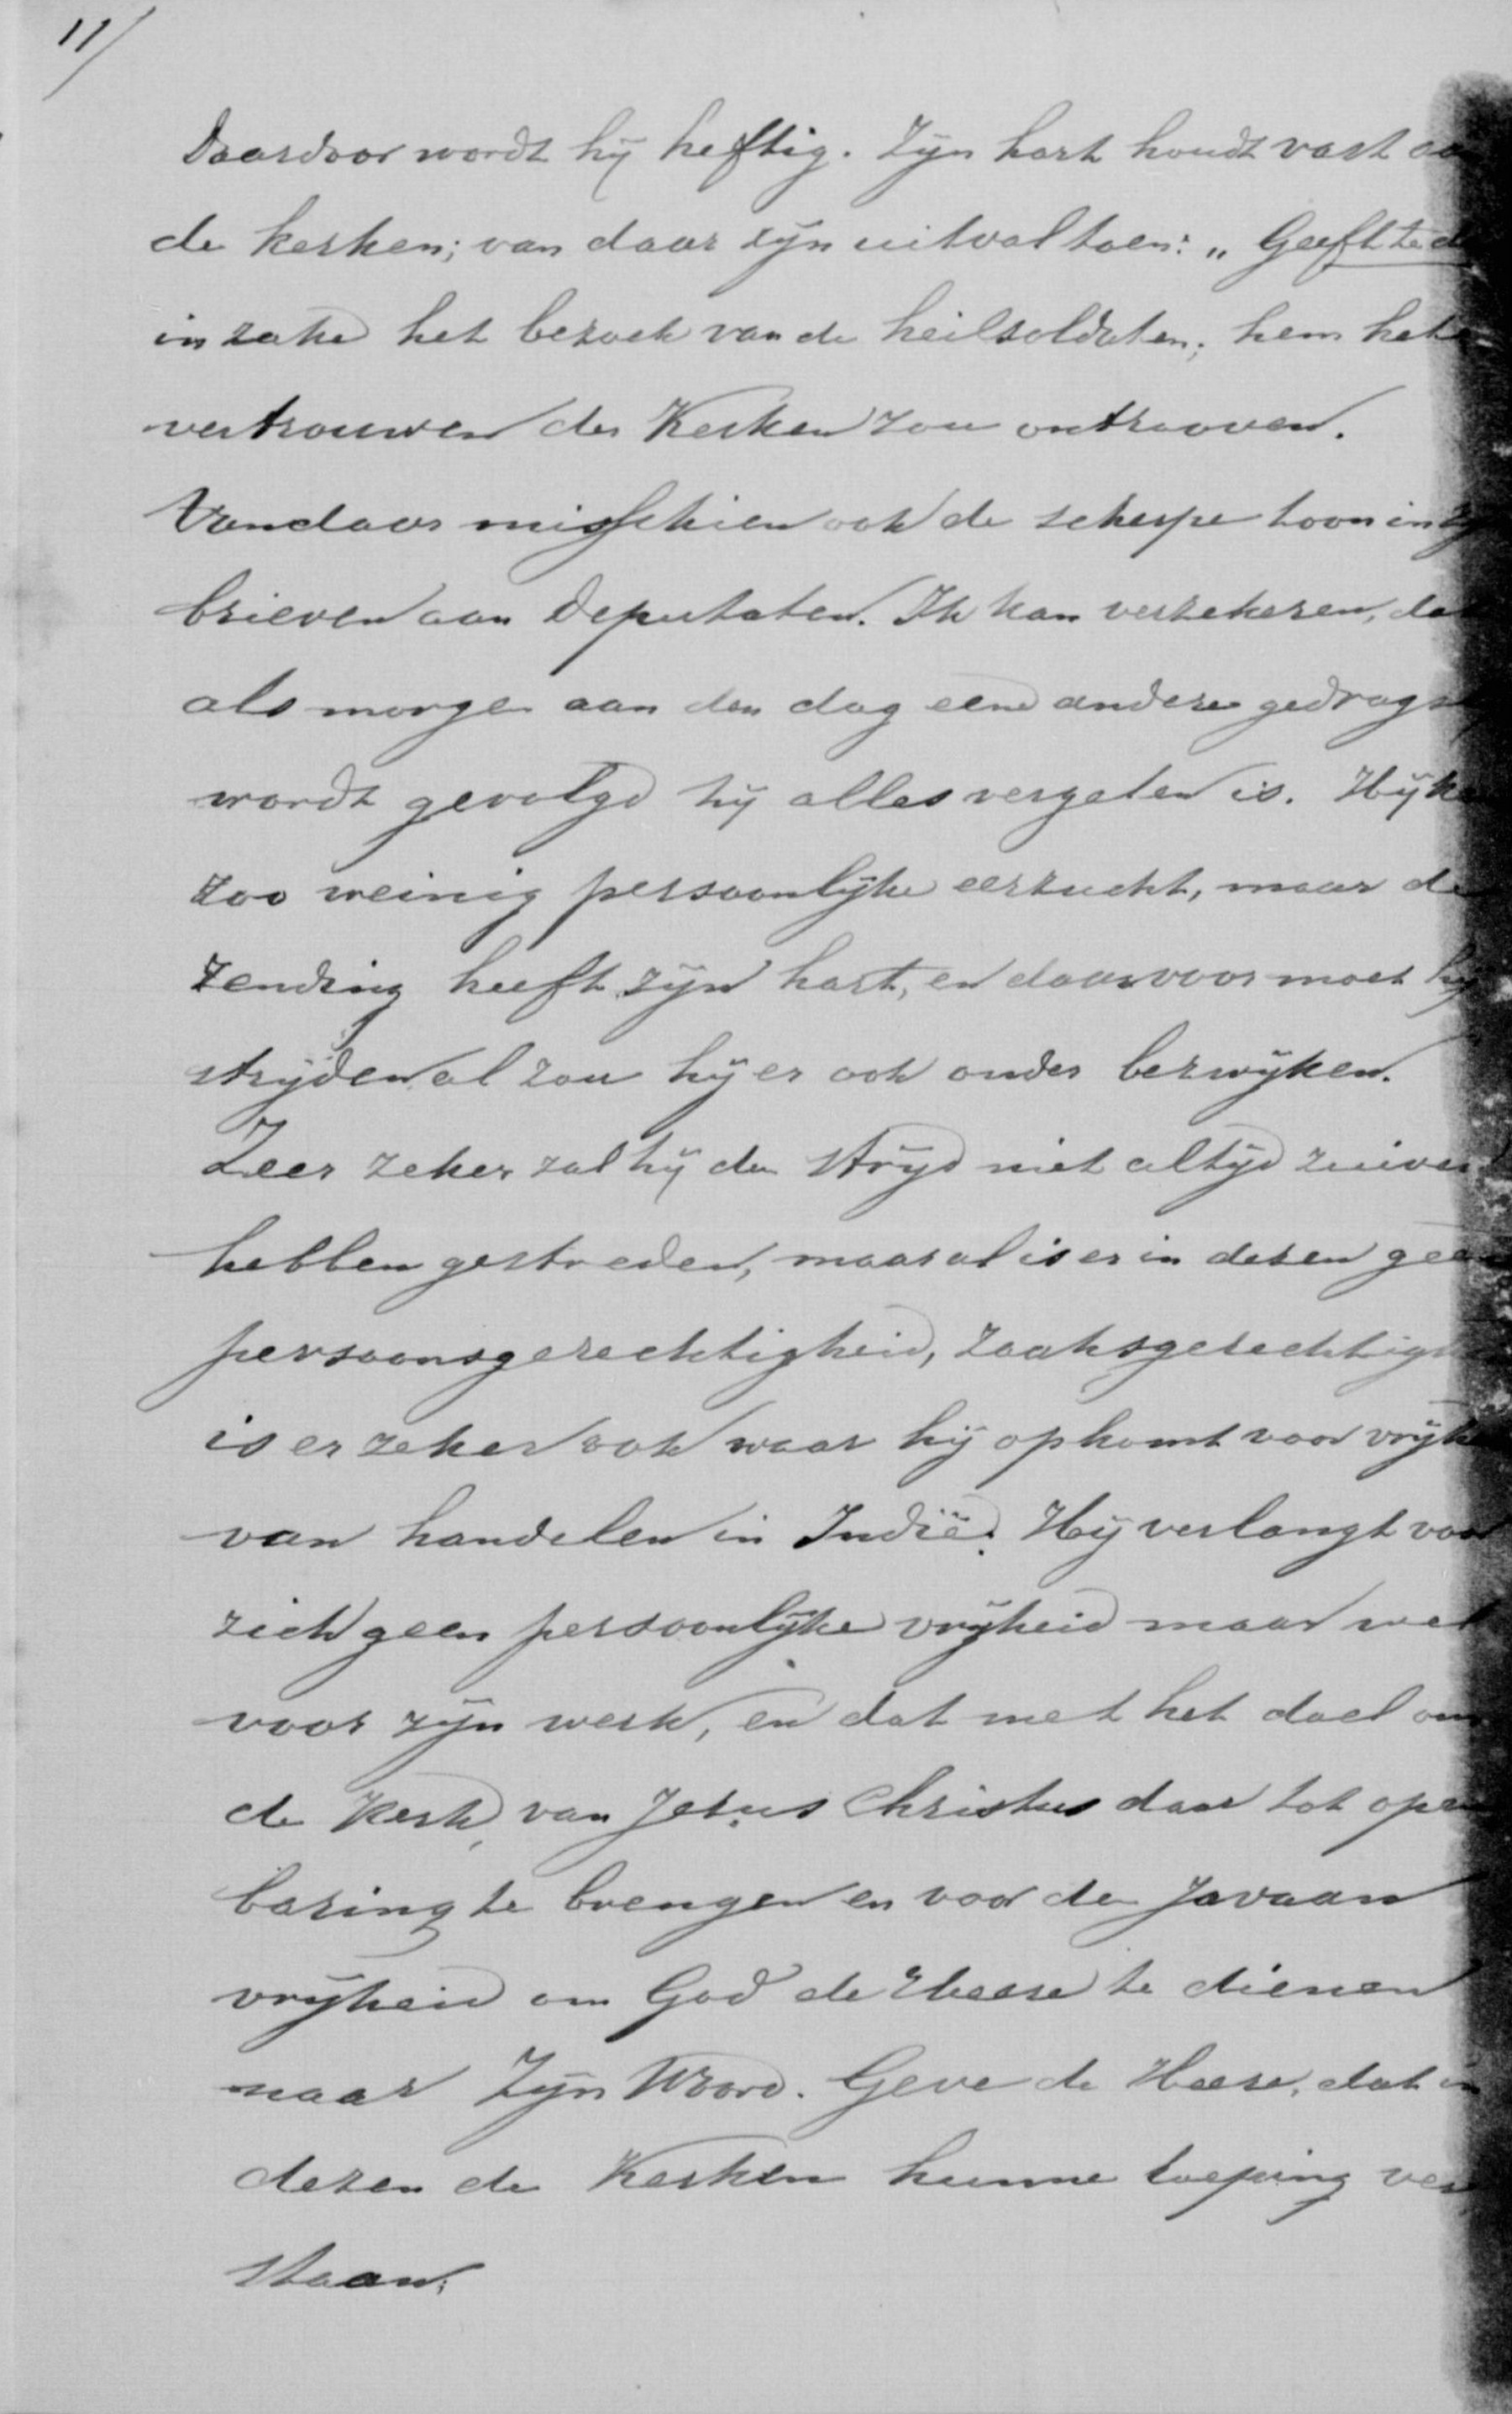 11/
Daardoor wordt hij heftig. Zijn hart houdt vast
de kerken; van daar zijn uitval toen: „Geeft te
in zake het bezoek van de heilsoldaten; hem het
vertrouwen der Kerken zou ontrooven.
Vandaar misschien ook de scherpe toon in
brieven aan Deputaten. Ik kan verzekeren, dat
als morgen aan den dag eene andere
wordt gevolgd hij alles vergeten is. Hij
zoo weinig persoonlijke eerzucht, maar de
zending heeft zijn hart, en daarvoor moet hij
strijden al zou hij er ook onder bezwijken.
Zeer zeker zal hij den strijd niet altijd zuiver
hebben gestreden, maar al is er in dezen geen
persoonsgerechtigheid, zaaksgerechtig
is er zeker ook waar hij opkomt voor
van handelen in Indië. Hij verlangt voor
zich geen persoonlijke vrijheid maar wel
voor zijn werk, en dat met het doel om
de Kerk van Jezus Christus daar tot open
baring te brengen en voor den Javaan
vrijheid om God de Heere te dienen
naar Zijn Woord. Geve de Heere, dat in
dezen de Kerken hunne roeping ver
staan.